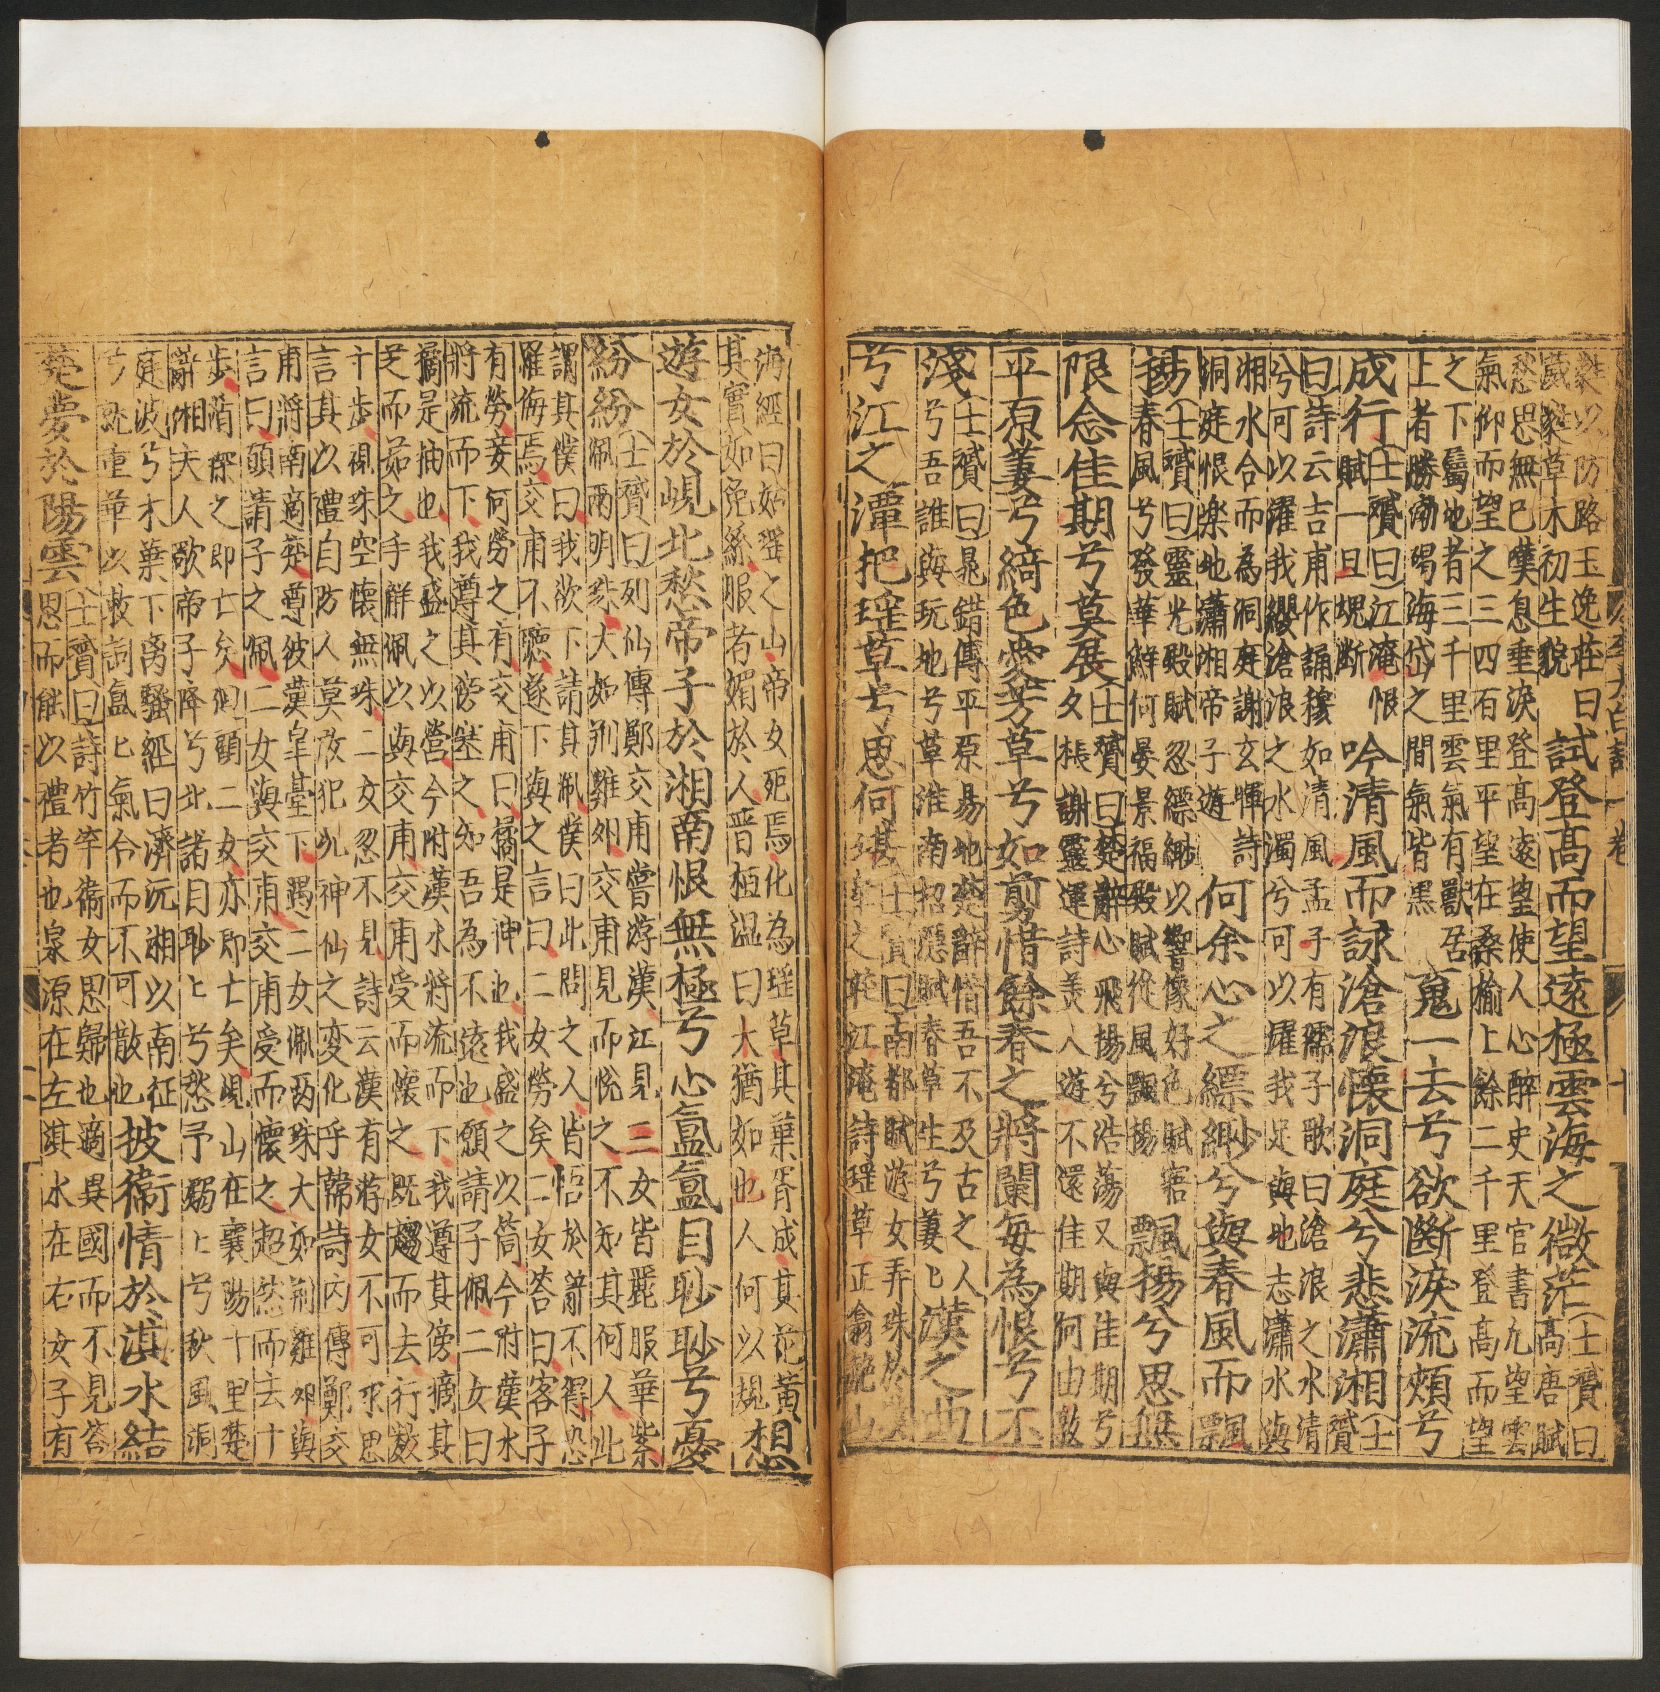 李太白詩一卷 十
叢以防路玉逸荘曰
葳蕤草木初生貌
試登高而望遠極雲海之微茫
士贇曰
高唐賦
愁思無已嘆息垂淚登高遠望使人心醉史天官書凡望雲
氣仰而望之三四百里平望在桑榆上餘二千里登高而望
之下屬地者三千里雲氣有獸居
上者勝勃碣海岱之間氣皆黑
䰟一去兮欲斷淚流頰兮
成行
士贇曰江淹恨
賦一旦䰟斷
吟清風而詠滄浪懷洞庭兮悲瀟湘
士
贇
曰詩云吉甫作誦穆如清風孟子有孺子歌曰滄浪之水清
兮可以濯我纓滄浪之水濁兮可以濯我足與地志瀟水與
湘水合而為洞庭謝玄暉詩
洞庭張樂地瀟湘帝子遊
何余心之縹緲兮與春風而飄
揚
士贇曰靈光殿賦忽縹緲以響像好色賦寤
春風兮發華鮮何晏景福殿賦從風飄揚
飄揚兮思無
限念佳期兮莫展
士贇曰楚辭心飛揚兮浩蕩又與佳期兮
夕張謝靈運詩美人遊不還佳期何由敦
平原萋兮綺色愛芳草兮如剪惜餘春之將闌每為恨兮不
淺
士贇曰晁錯傳平原易地楚辭惜吾不及古之人
兮吾誰與玩地兮草淮南招隱賦春草生兮萋匕
漢之曲
兮江之潭把瑤草兮思何堪
士贇曰南都賦游女弄珠於漢
江淹詩瑤草正翕赩山
海經曰姑瑤之山帝女死焉化為瑤草其葉胥成其花黃
其實如兔絲服者媚於人晋桓溫曰大猶如也人何以規
想
遊女於峴北愁帝子於湘南恨無極兮心氳氳目眇眇兮憂
紛紛
士贇曰列仙傳鄭交甫嘗游漢江見二女皆麗服華紫
佩兩明珠大如荆雞卵交甫見而悅之不知其何人也
謂其僕曰我欲下請其珮僕曰此間之人皆悟於辭不得恐
羅悔焉交甫不聽遂下與之言曰二女勞矣二女答曰客子
有勞妾何勞之有交甫曰橘是柚也我盛之以筥今附漢水
將流而下我遵其傍塞之知吾為不遜也願請子佩二女曰
橘是柚也我盛之以營今附漢水將流而下我遵其傍摘其
芝而茹之手解佩以與交甫交甫受而懷之既趨而去行數
十步視珠空懷無珠二女忽不見詩云漢有游女不可求思
言其以禮自防人莫敢犯况神仙之変化乎韓詩内傳鄭交
甫將南適楚遵彼漢臯臺下遇二女佩兩珠大如荆雞卵與
言曰願請子之佩二女與交甫交甫受而懷之超然而去十
步循探之即亡矣迴顧二女亦即亡矣峴山在襄陽十里楚
辭湘夫人歌帝子降兮北渚目眇匕兮愁予嫋匕兮秋風洞
庭波兮木葉下离騷經曰濟沅湘以南征
兮就重華以敶詞氳匕氣合而不可散也
披衛情於淇水結
楚夢於陽雲
士贇曰詩竹竿衞女思歸也適異國而不見答
思而能以禮者也泉源在左淇水在右女子有